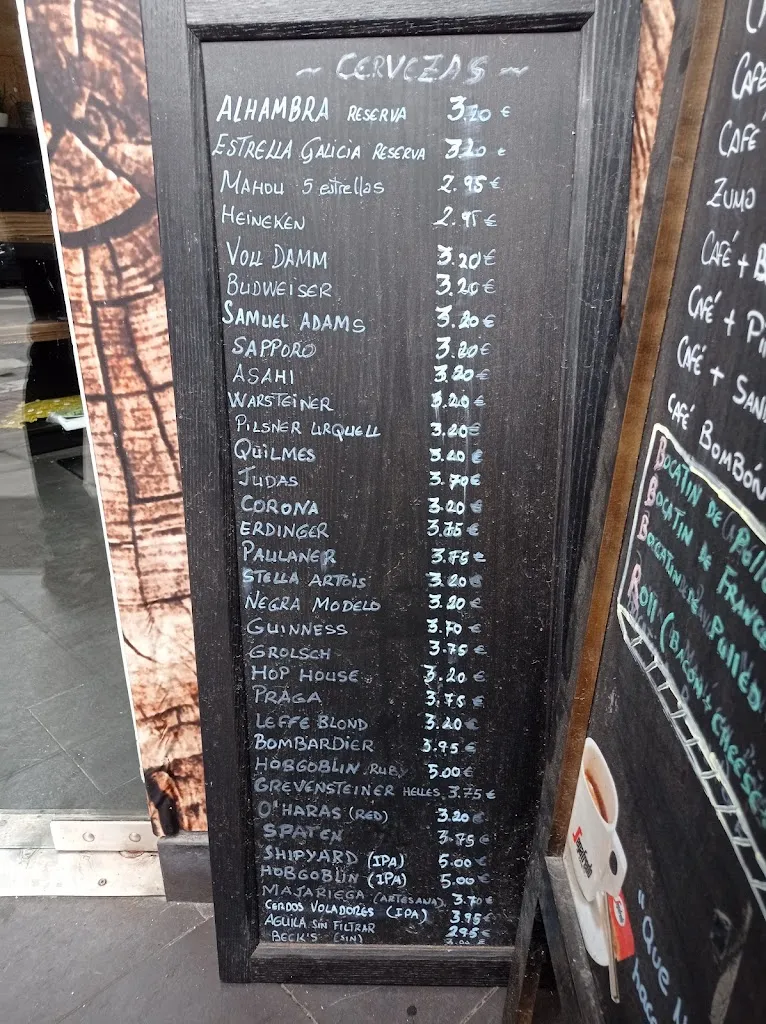 ~ CERVEZAS ~
ALHAMBRA RESERVA 3.20 €
ESTRELLA GALICIA RESERVA 3.20 €
MAHOU 5 estrellas 2.95 €
HEINEKEN 2.95 €
VOLL DAMM 3.20 €
BUDWEISER 3.20 €
SAMUEL ADAMS 3.20 €
SAPPORO 3.20 €
ASAHI 3.20 €
WARSTEINER 3.20 €
PILSNER URQUELL 3.20 €
QUILMES 3.20 €
JUDAS 3.70 €
CORONA 3.20 €
ERDINGER 3.75 €
PAULANER 3.75 €
STELLA ARTOIS 3.20 €
NEGRA MODELO 3.20 €
GUINNESS 3.70 €
GROLSCH 3.75 €
HOP HOUSE 3.20 €
PRAGA 3.75 €
LEFFE BLOND 3.20 €
BOMBARDIER 3.95 €
HOBGOBLIN RUBY 5.00 €
GREVENSTEINER HELLES 3.75 €
O'HARAS (RED) 3.20 €
SPATEN 3.75 €
SHIPYARD (IPA) 5.00 €
HOBGOBLIN (IPA) 5.00 €
MAJARIEGA (ARTESANA) 3.70 €
CERDOS VOLADORES (IPA) 3.95 €
AGUILA SIN FILTRAR 2.95 €
BECK'S (SIN) €
CAFÉ
CAFÉ
ZUMO
CAFÉ + B
CAFÉ + PI
CAFÉ + SAN
CAFÉ BOMBÓN
BOCATIN DE POLL
BOCATIN DE FRANC
BOCATIN DE PULLED
ROLL (BACON + CHEESE
Segafredo
"QUE N